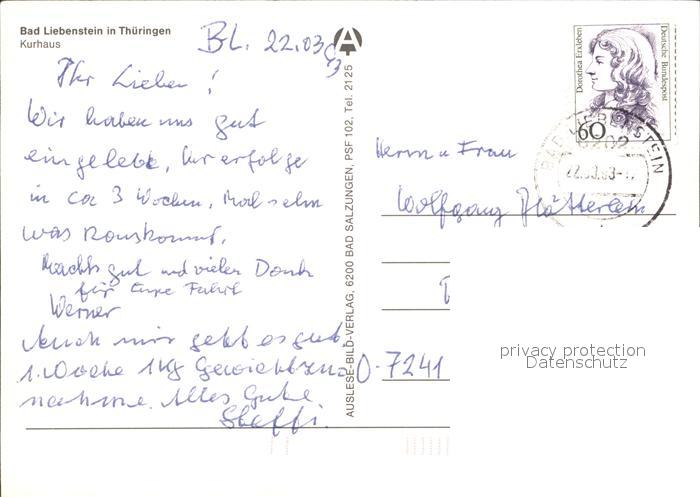 Bad Liebenstein in Thüringen
Kurhaus
BL. 22.03.93
Ihr Lieben!
Wir haben uns gut
eingelebt, Kurerfolge
in ca 3 Wochen, Mal sehn
was Rauskommt.
Machts gut und vielen Dank
für Eure Fahrt
Werner
Auch mir geht es gut
1. Woche 1 Kg Gewichtszu-
nahme. Alles Gute
Steffi.
AUSLESE-BILD-VERLAG, 6200 BAD SALZUNGEN, PSF 102, Tel. 2125
Herrn u Frau
Wolfgang
O-7241
Dorothea Erxleben
Deutsche Bundespost
60
BAD LIEBENSTEIN
6202
22.03.93-17
privacy protection
Datenschutz